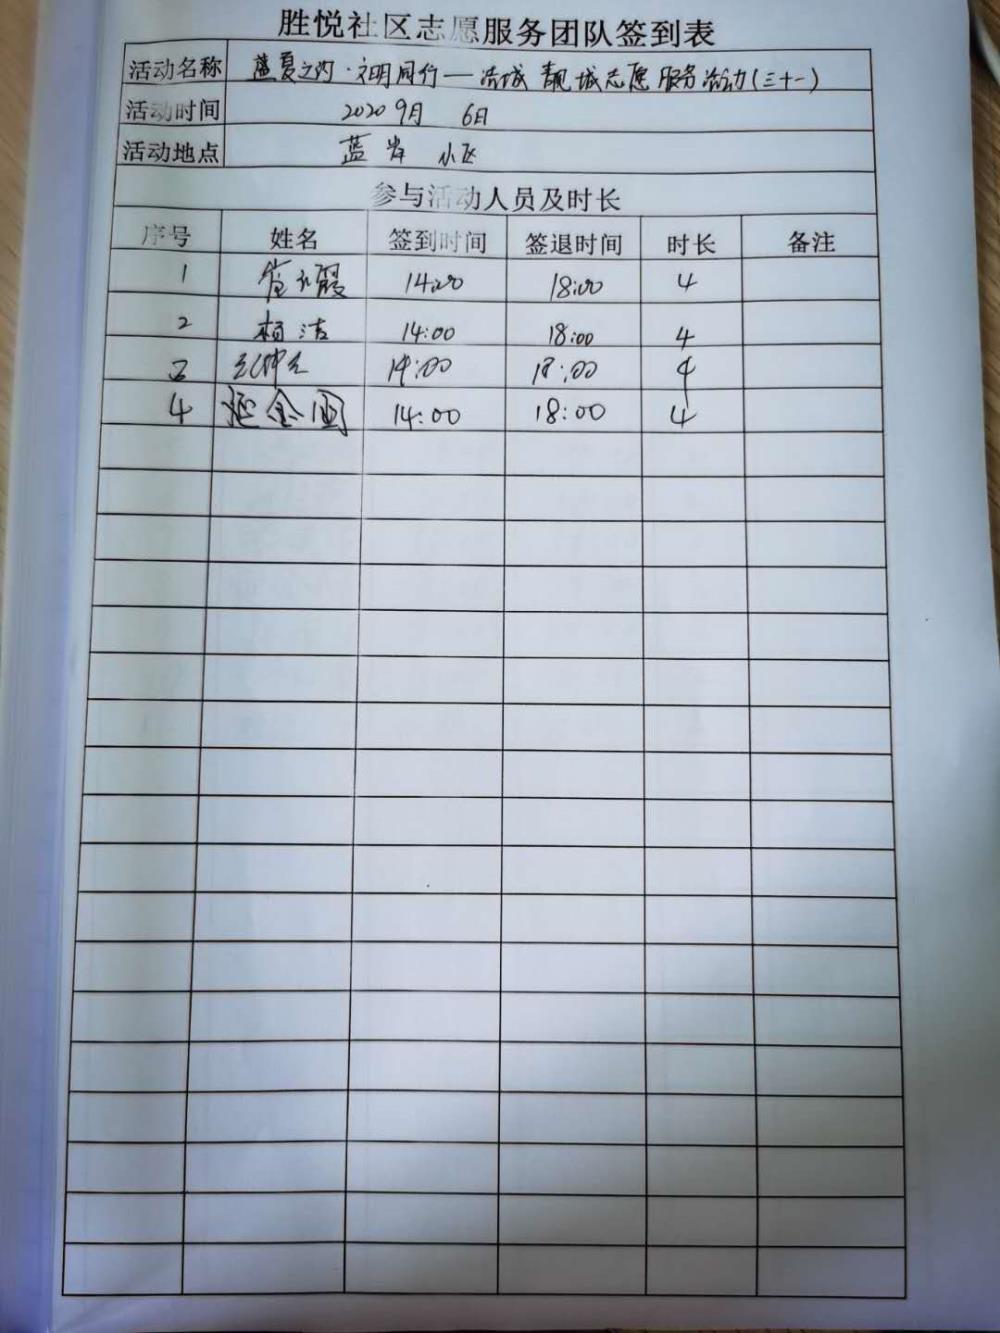 胜悦社区志愿服务团队签到表
活动名称 蓝夏之约·文明同行一洁城靓城志愿服务活动(三十一)
活动时间 2020 9月 6日
活动地点 蓝岸 小区
参与活动人员及时长
序号 姓名 签到时间 签退时间 时长 备注
1 14:00 18:00 4
2 杨洁 14:00 18:00 4
3 14:00 18:00 4
4 14:00 18:00 4